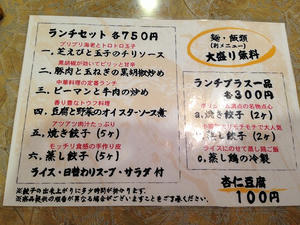 ランチセット 各750円
プリプリ海老とトロトロ玉子
一、芝えびと玉子のチリソース
黒胡椒が効いてピリッと甘辛
二、豚肉と玉ねぎの黒胡椒炒め
中華料理の定番ランチ
三、ピーマンと牛肉の炒め
香り豊かなトウフ料理
四、豆腐と野菜のオイスターソース煮
アツアツ肉汁たっぷり
五、焼き餃子(5ヶ)
モッチリ食感の手作り皮
六、蒸し餃子(5ヶ)
ライス・日替わりスープ・サラダ 付
※餃子の出来上がりに多少時間が掛かります。
ご了承ください。
麺・飯類
大盛り無料
ランチプラス一品
各300円
ボリューム満点の名物点心
a.焼き餃子(2ヶ)
モチモチで大人気
b.蒸し餃子(2ヶ)
ライスにのせて蒸し鶏ご飯
c.蒸し鶏の冷製
杏仁豆腐
100円